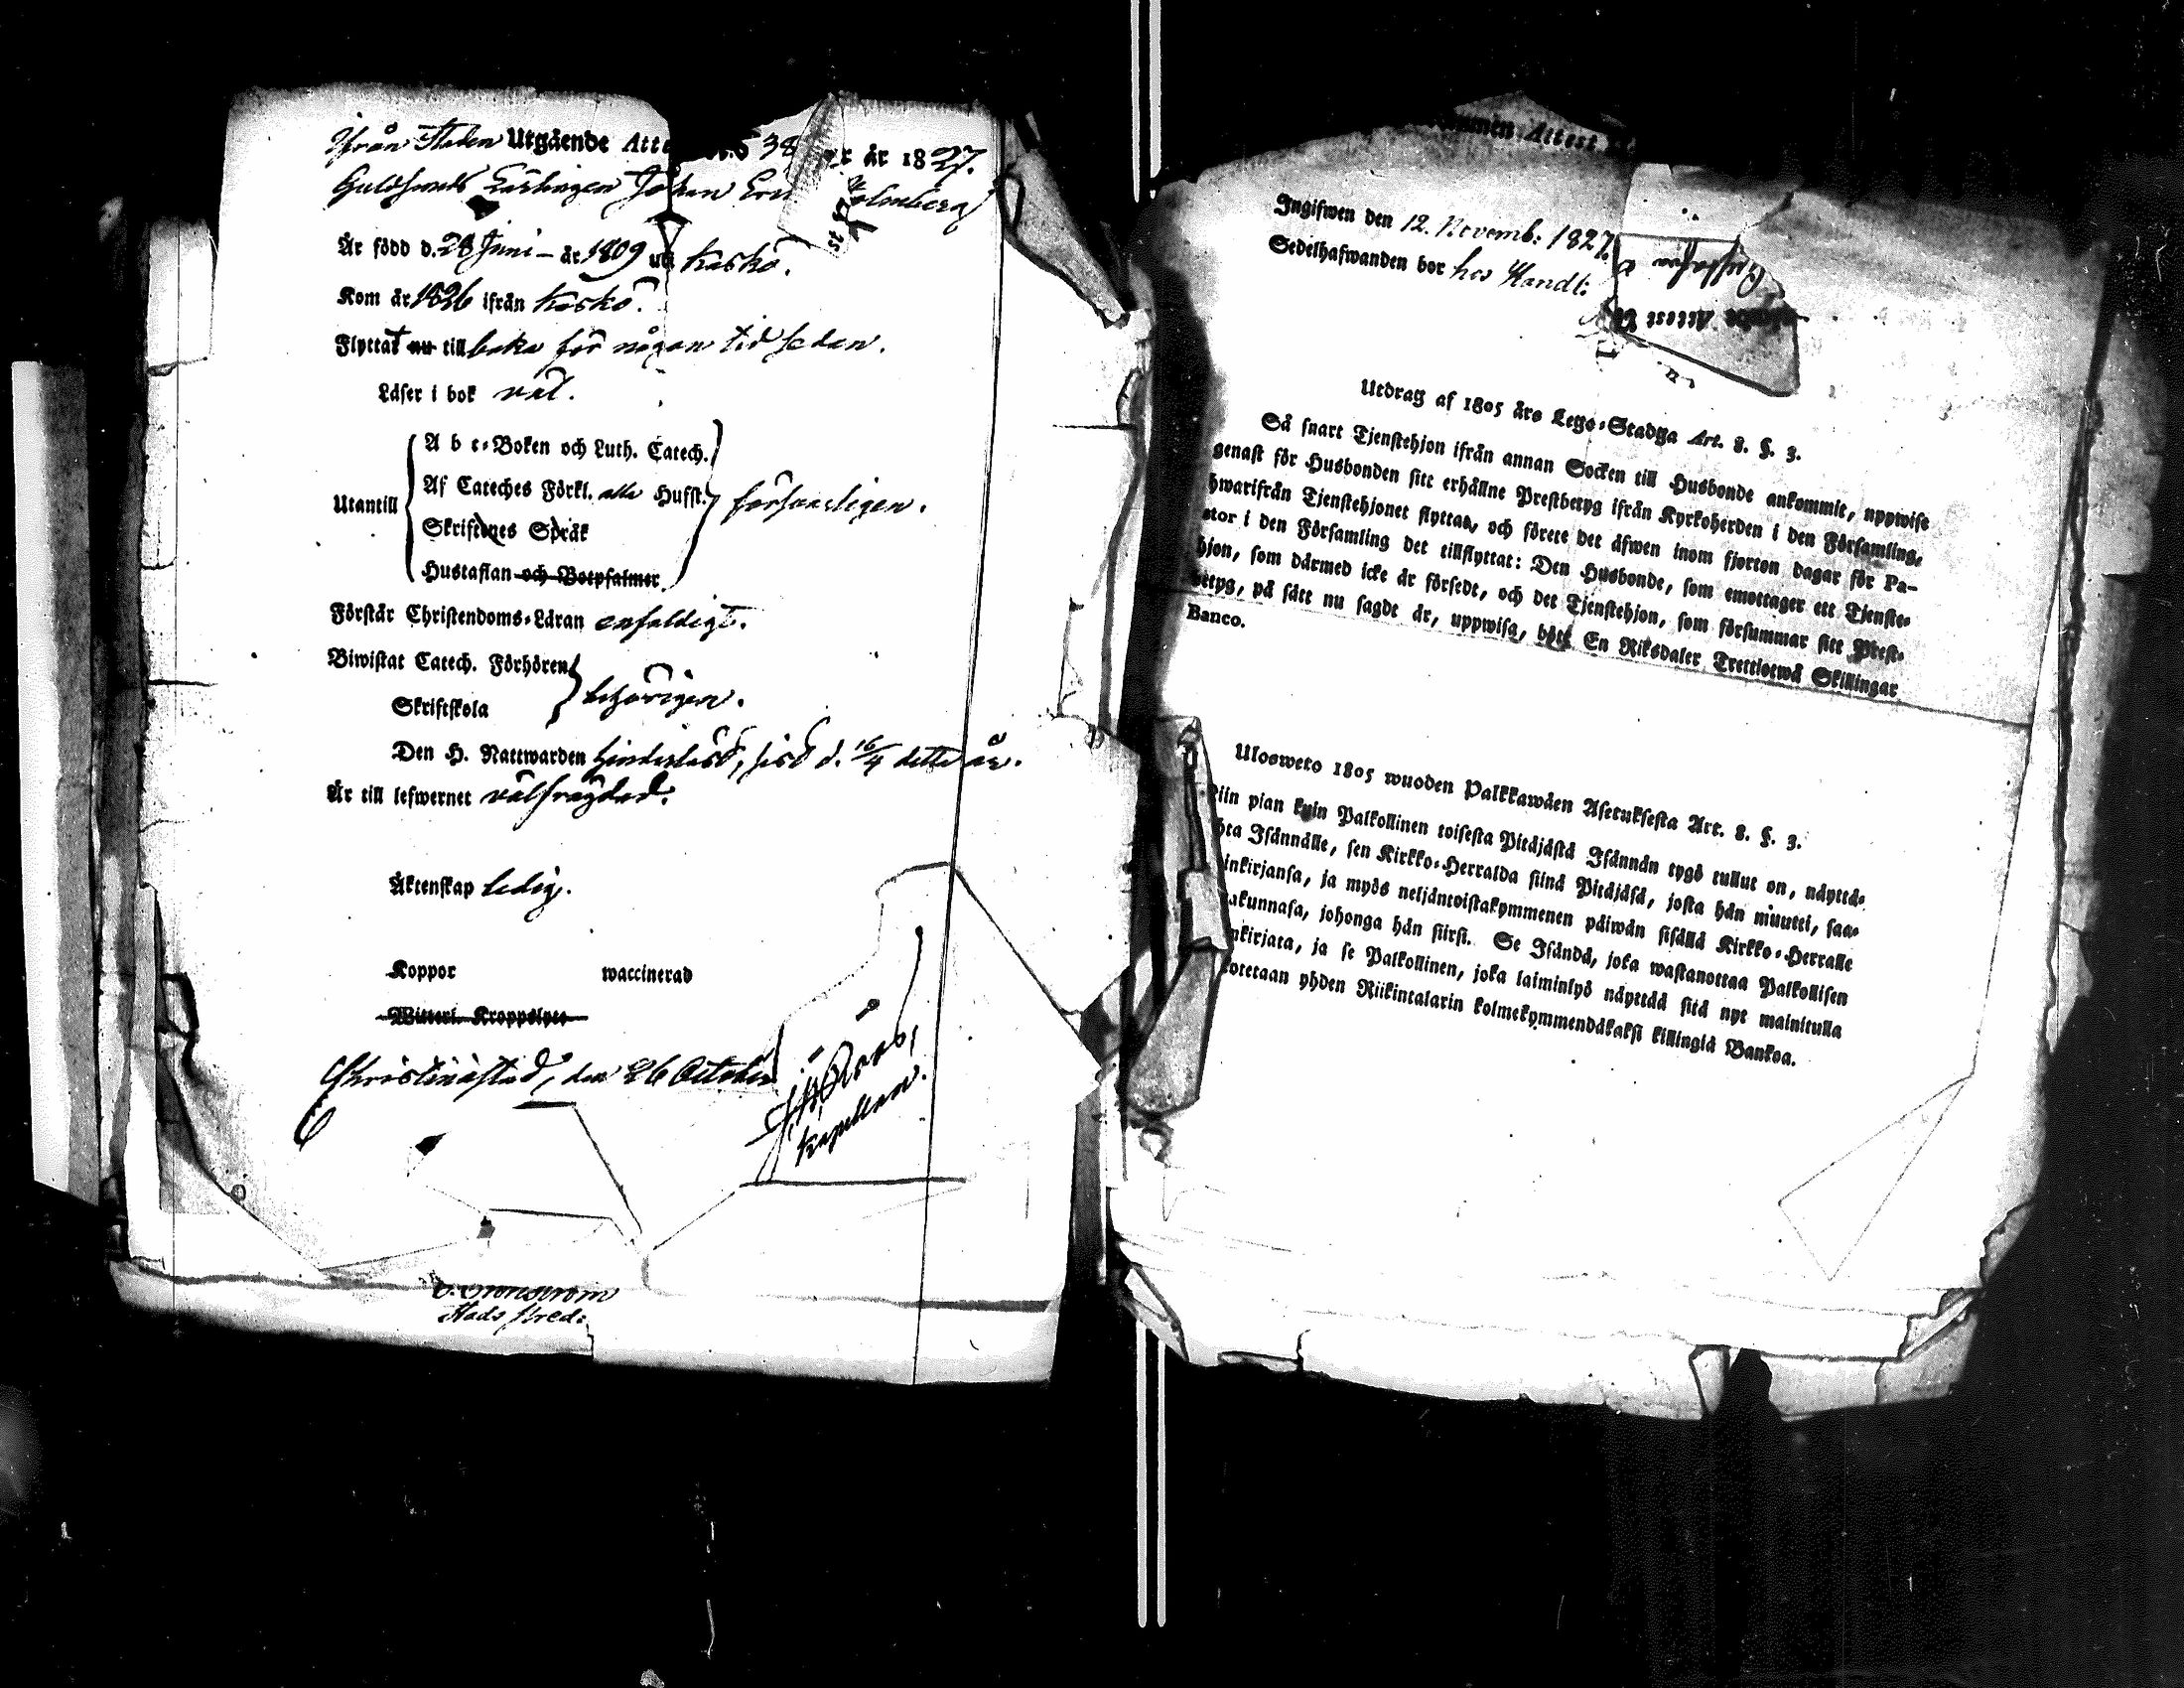 Ifrån Staden Utgående Atte 38 år 1827.
Guldsmeds Lärlingen Johan Eri olmberg
Är född d. 28 Juni - år 1809 uti Kaskö.
Kom år 1826 ifrån Kaskö.
Flyttat nu tillbaka för någon tid sedan.
Läser i bok väl.
Utantill
A b c-Boken och Luth. Catech.
Af Cateches Förkl. alla Hufst. försvarligen.
Skriftenes Språk
Hustaflan och Botpsalmer
Förstår Christendoms-Läran enfaldigt.
Biwistat Catech. Förhören
Skriftskola behörigen.
Den H. Nattwarden hinderlöst, sist d. 16/4 detta år.
Är till lefwernet välfrägdad.
Äktenskap ledig.
Koppor waccinerad
Witterl. Kroppslyte
Christinæstad, den 26 October
Kapellan.
Stads fired:
Attest
Ingifwen den 12. Novemb: 1827.
Sedelhafwanden bor hos Handl:
Utdrag af 1805 års Lego-Stadga Art. 8. §. 3.
Så snart Tjenstehjon ifrån annan Socken till Husbonde ankommit, uppwise
genast för Husbonden sitt erhållne Prestbetyg ifrån Kyrkoherden i den Församling,
hwarifrån Tjenstehjonet flyttat, och förete det äfwen inom fjorton dagar för Pa-
stor i den Församling det tillflyttat: Den Husbonde, som emottager ett Tjenste-
hjon, som därmed icke är försedt, och det Tjenstehjon, som försummar sitt Prest-
betyg, på sätt nu sagdt är, uppwisa, böte En Riksdaler Trettiotwå Skillingar
Banco.
Ulosweto 1805 wuoden Palkkawäen Asetuksesta Art. 8. §. 3.
Niin pian kuin Palkollinen toisesta Pitäjästä Isännän tygö tullut on, näyttä-
Isännälle, sen Kirkko-Herralda siinä Pitäjäsä, josta hän muutti, saa-
inkirjansa, ja myös neljäntoistakymmenen päiwän sisällä Kirkko-Herralle
akunnasa, johonga hän siirsi. Se Isändä, joka wastanottaa Palkollisen
nkirjata, ja se Palkollinen, joka laiminlyö näyttää sitä nyt mainitulla
otetaan yhden Riikintalarin kolmekymmendäkaksi killingiä Bankoa.